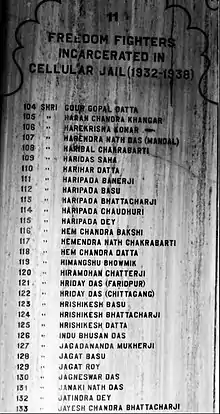 11
FREEDOM FIGHTERS
INCARCERATED IN
CELLULAR JAIL (1932-1938)
104 SHRI GOUR GOPAL DATTA
105 " HARAN CHANDRA KHANGAR
106 " HAREKRISHA KONAR
107 " HARENDRA NATH DAS (MANDAL)
108 " HARIBAL CHAKRABARTI
109 " HARIDAS SAHA
110 " HARIHAR DATTA
111 " HARIPADA BANERJI
112 " HARIPADA BASU
113 " HARIPADA BHATTACHARJI
114 " HARIPADA CHAUDHURI
115 " HARIPADA DEY
116 " HEM CHANDRA BAKSHI
117 " HEMENDRA NATH CHAKRABARTI
118 " HEM CHANDRA DATTA
119 " HIMANGSHU BHOWMIK
120 " HIRAMOHAN CHATTERJI
121 " HRIDAY DAS (FARIDPUR)
122 " HRIDAY DAS (CHITTAGANG)
123 " HRISHIKESH BASU
124 " HRISHIKESH BHATTACHARJI
125 " HRISHIKESH DATTA
126 " INDU BHUSAN DAS
127 " JAGADANANDA MUKHERJI
128 " JAGAT BASU
129 " JAGAT ROY
130 " JAGNESWAR DAS
131 " JANAKI NATH DAS
132 " JATINDRA DEY
133 " JAYESH CHANDRA BHATTACHARJI